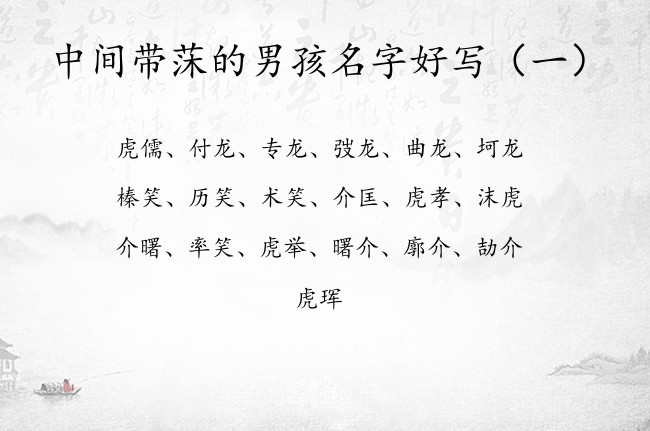 中间带莯的男孩名字好写（一）
虎儒、付龙、专龙、弢龙、曲龙、坷龙
榛笑、历笑、术笑、介匡、虎孝、沫虎
介曙、率笑、虎举、曙介、廓介、劼介
虎珲